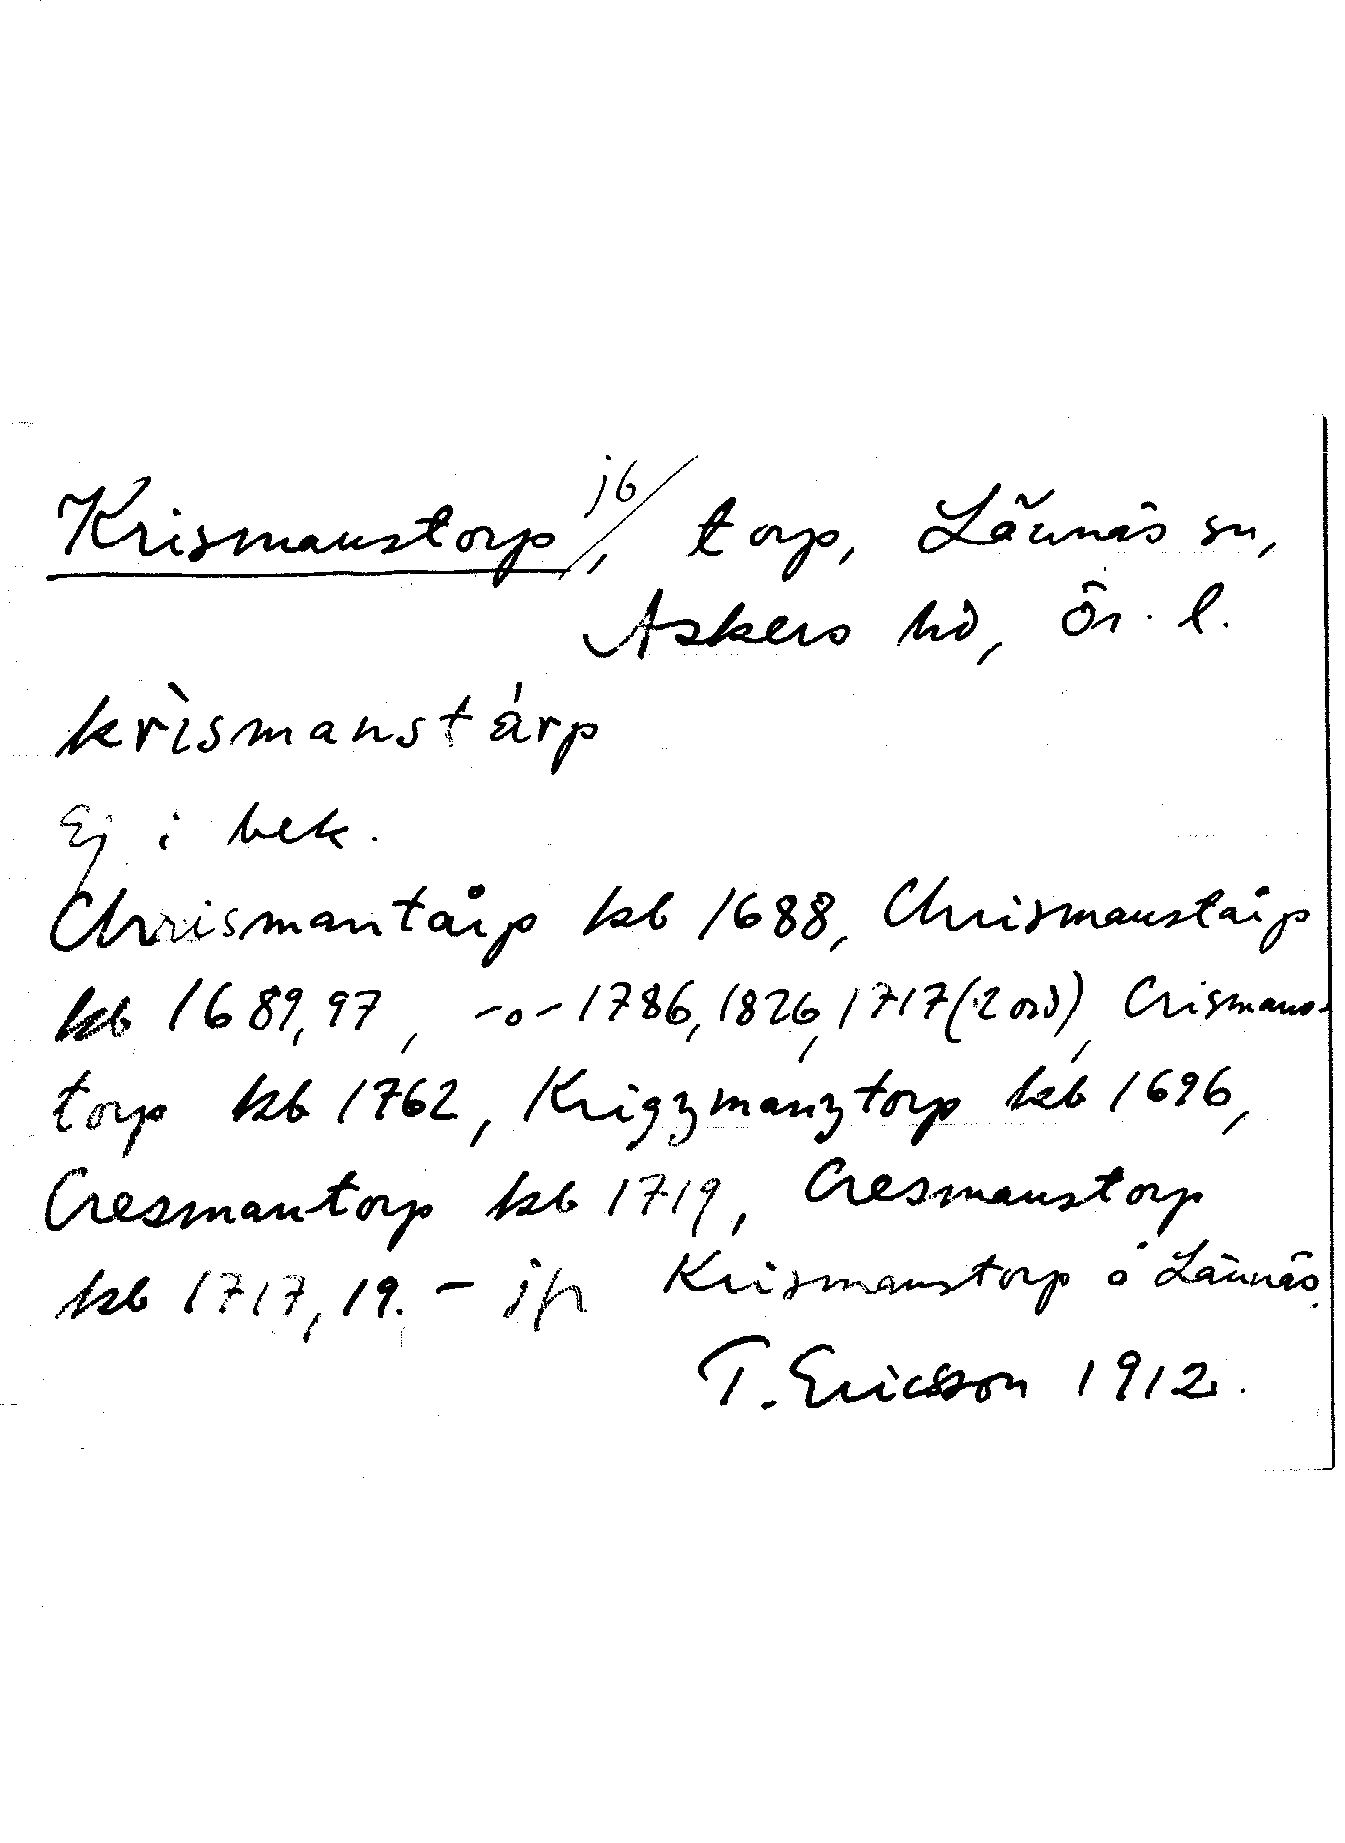 Krismanstorp jb/, torp, Lännäs sn,
Askers hd, Ör. l.
krìsmanstárp
Ej i bek.
Chrismantårp kb 1688, Chrismanstårp
kb 1689, 97, -o- 1786, 1826, 1717 (2 ord), Crismans-
torp kb 1762, Krigzmanztorp kb 1696,
Cresmantorp kb 1719, Cresmanstorp
kb 1717, 19. - jfr Krismanstorp o Lännäs.
T. Ericsson 1912.